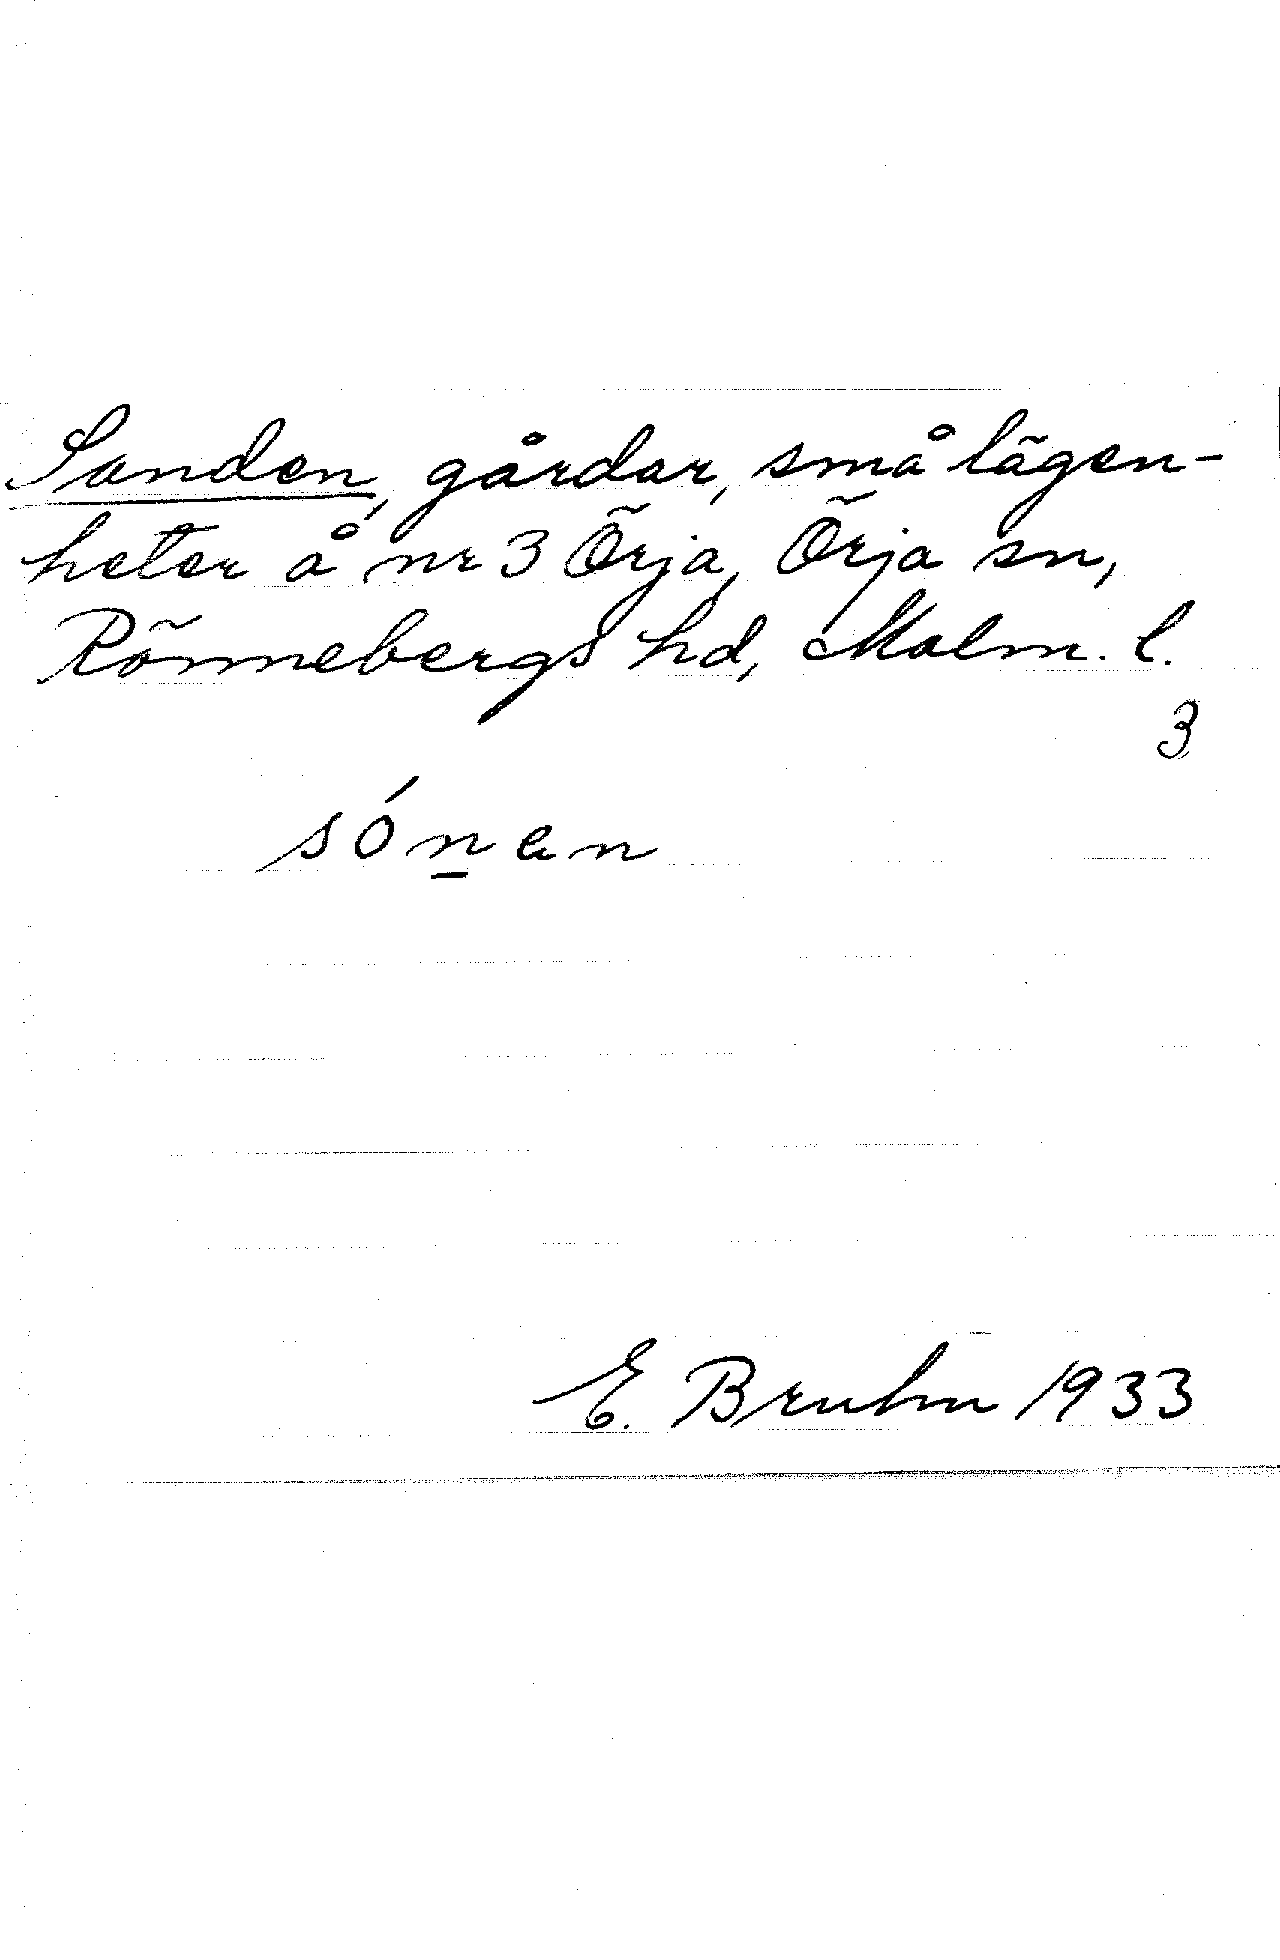 Sanden, gårdar, små lägen-
heter å nr 3 Örja, Örja sn,
Rönnebergs hd, Malm. l.
3
sónan
E. Bruhn 1933